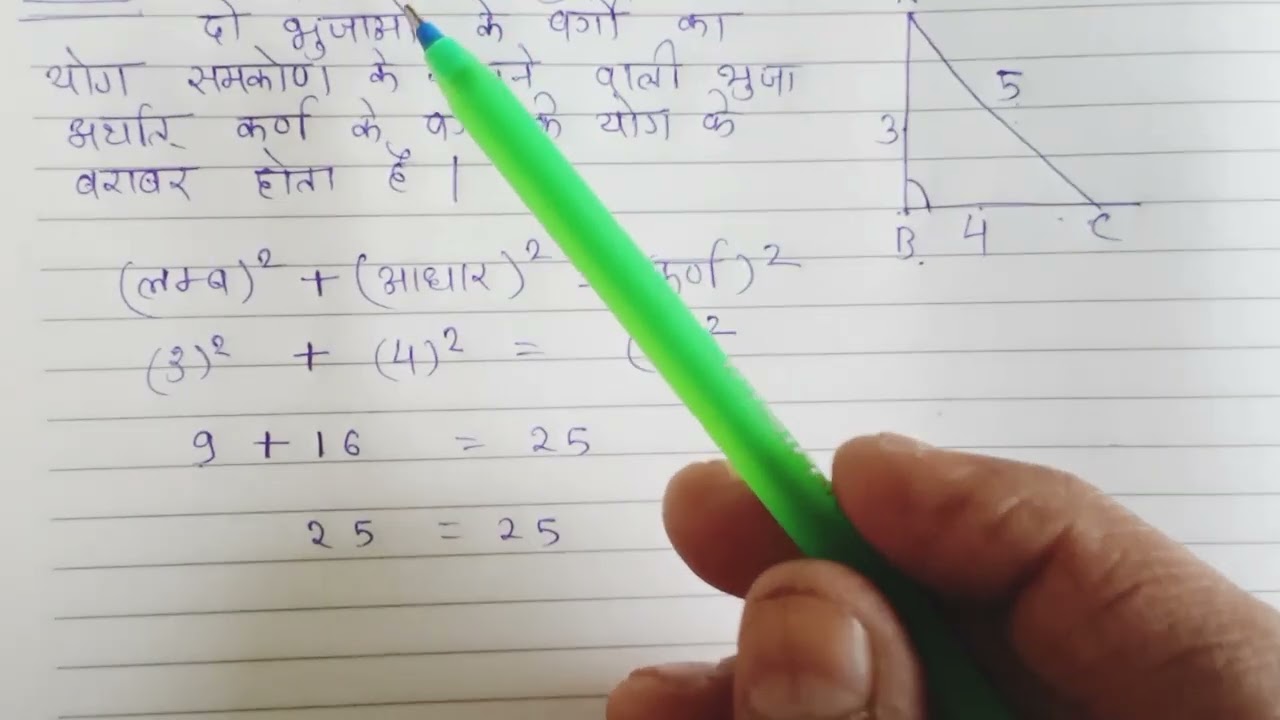 दो भुजाओं के वर्गों का
योग समकोण के वाली भुजा
अर्थात् कर्ण के के योग के
बराबर होता है |
5
3
B 4 C
(लम्ब)² + (आधार)² कर्ण)²
(3)² + (4)² = ( ²
9 + 16 = 25
25 = 25